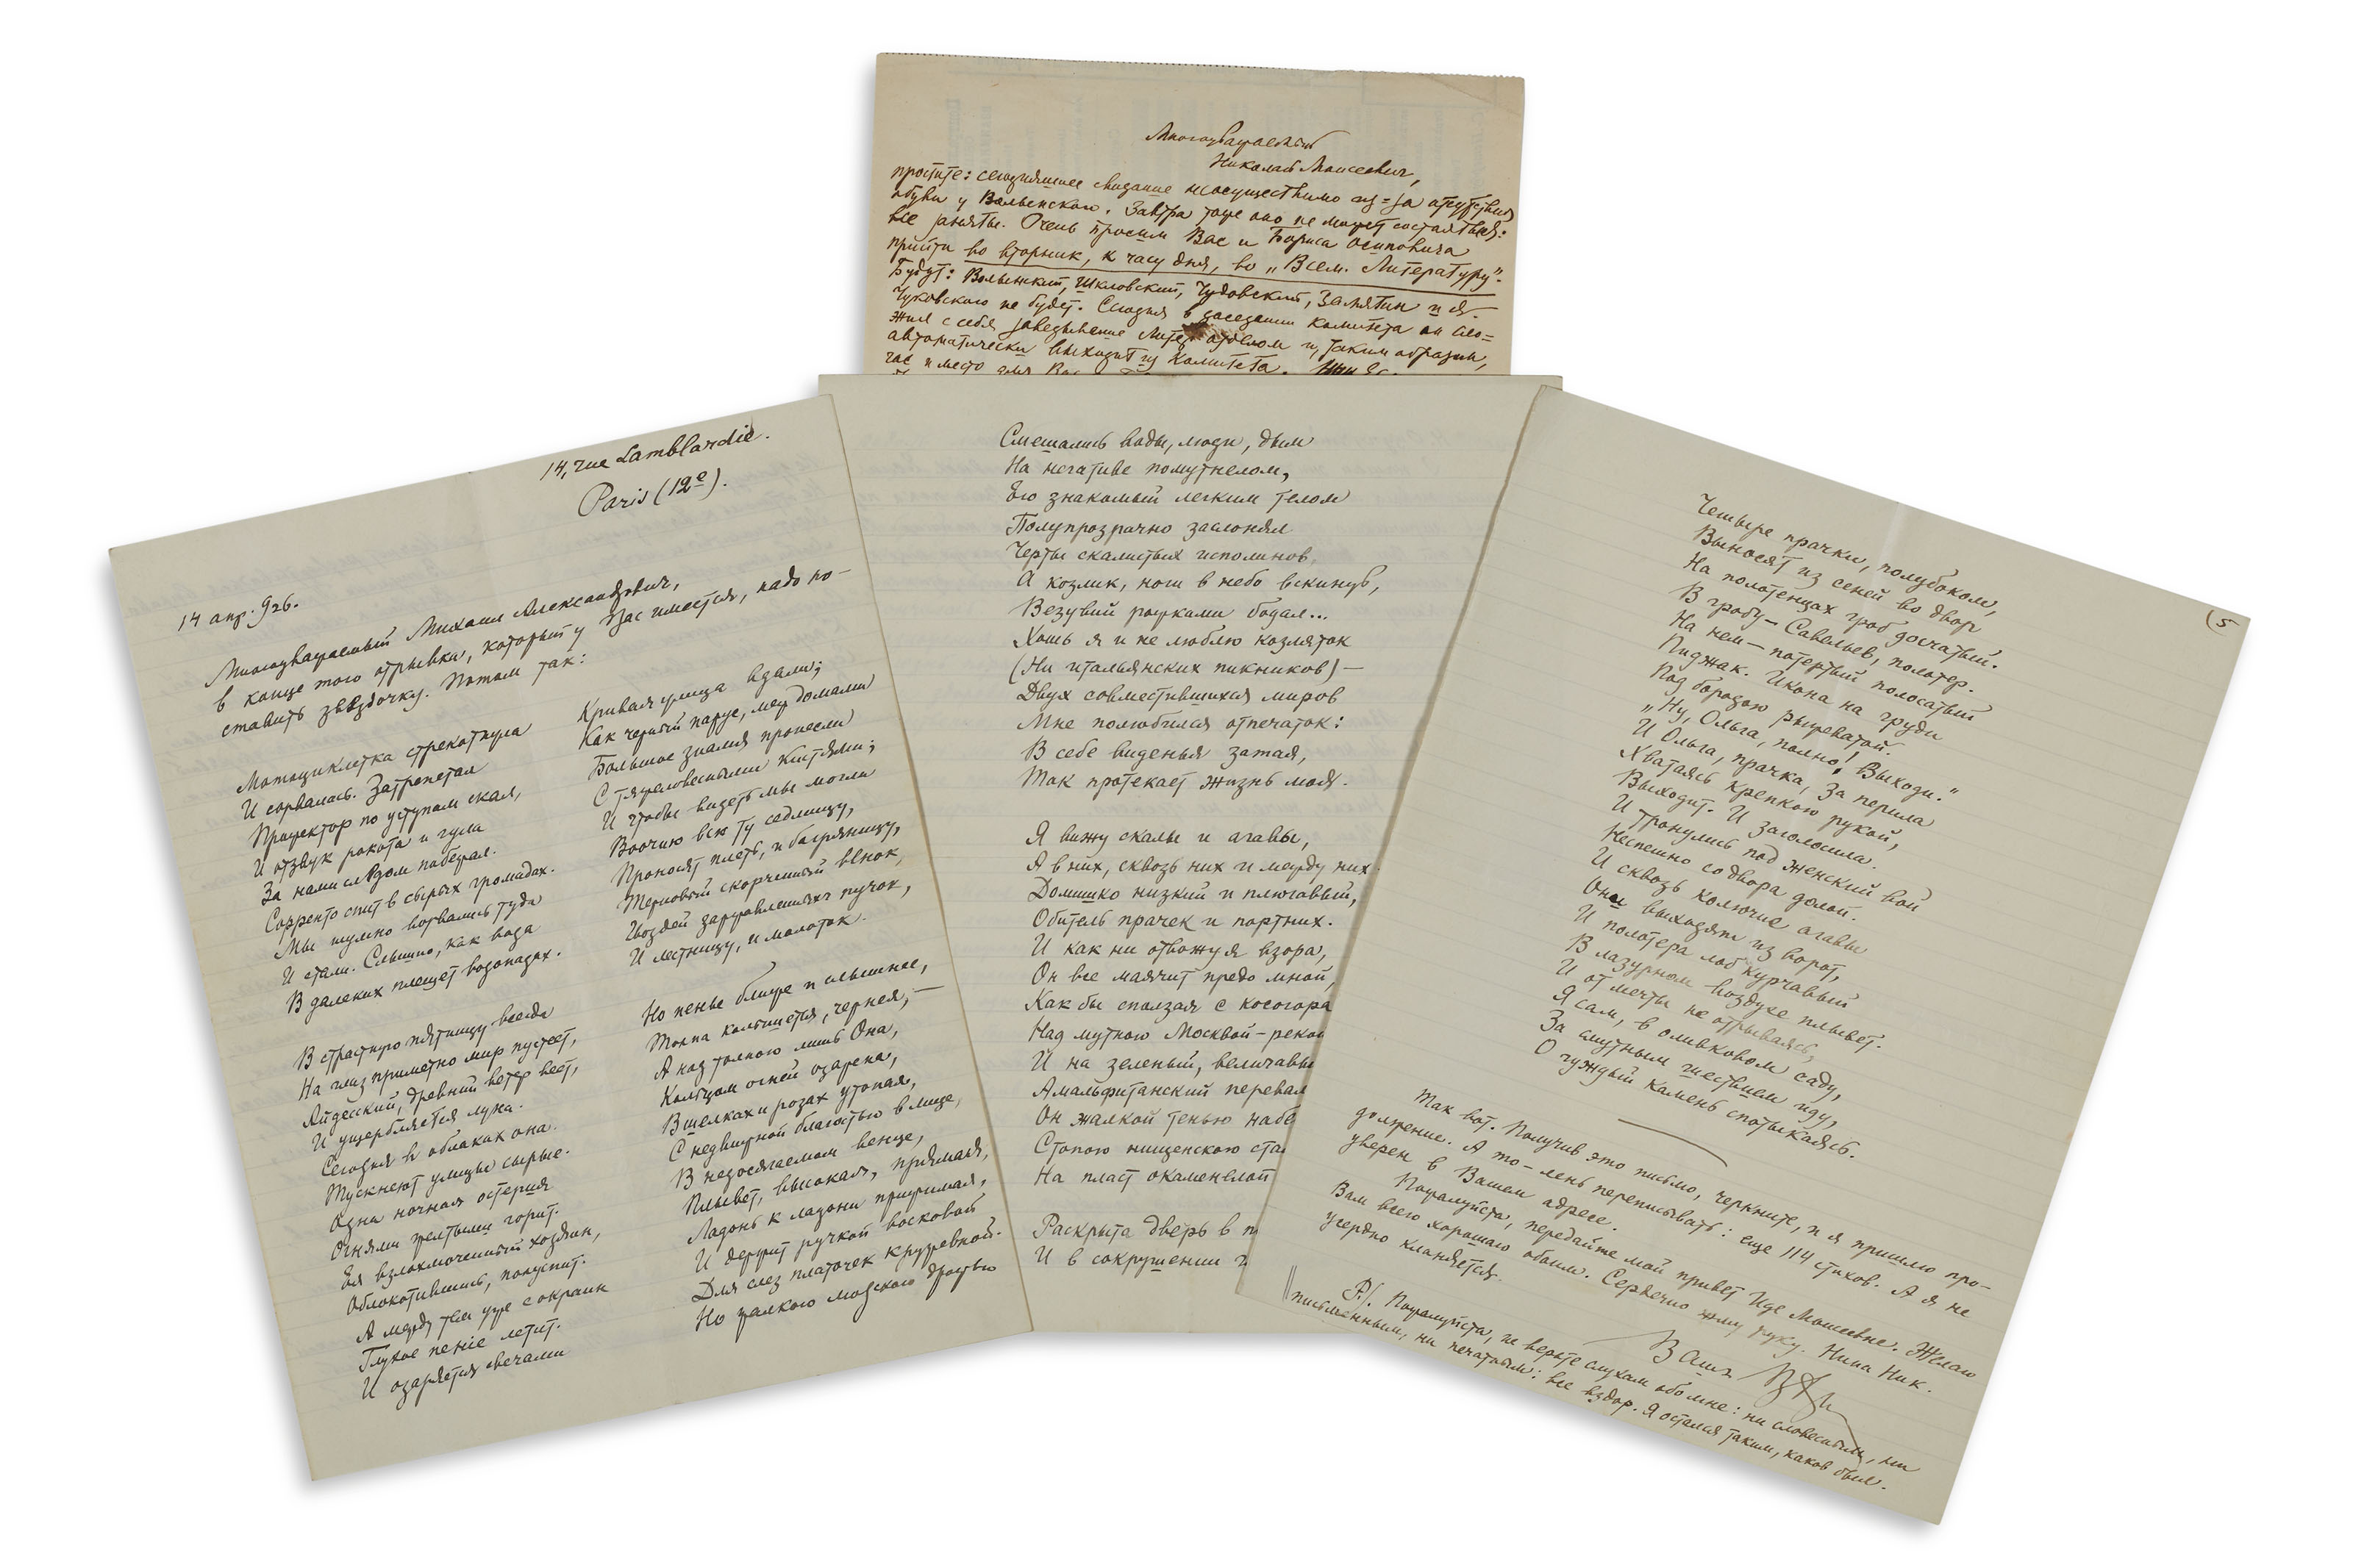 Многоуважаемый
Николай Моисеевич,
простите: сегодняшнее свидание неосуществимо из=за отсутствия
обуви у Волынского. Завтра тоже оно не может состояться:
все заняты. Очень просим Вас и Бориса Осиповича
прийти во вторник, к часу дня, во „Всем. Литературу".
Будут: Волынский, Шкловский, Чудовский, Замятин и я.
Чуковского не будет. Сегодня в заседании Комитета он сло=
жил с себя заведывание Литер. отделом и, таким образом,
автоматически выходит из Комитета.
час и место для
14, rue Lamblardie.
Paris (12e).
14 апр. 926.
Многоуважаемый Михаил Александрович,
в конце того отрывка, который у Вас имеется, надо по-
ставить звѣздочку. Потом так:
Мотоциклетка стрекотнула
И сорвалась. Затрепетал
Прожектор по уступам скал,
И отзвук рокота и гула
За нами слѣдом побежал.
Сорренто спит в сырых громадах.
Мы шумно ворвались туда
И стали. Слышно, как вода
В далеких плещет водопадах.
В страстную пятницу всегда
На глаз приметно мир пустеет,
Айдесский, древний ветер веет,
И ущербляется луна.
Сегодня в облаках она.
Тускнеют улицы сырые.
Одна ночная остерия
Огнями желтыми горит.
Ея взлохмоченный хозяин,
Облокотившись, полуспит.
А между тем уже с окраин
Глухое пеніе летит.
И озаряется свечами
Кривая улица вдали;
Как черный парус, меж домами
Большое знамя пронесли
С тяжеловесными кистями;
И чтобы видеть мы могли
Воочию всю ту седмицу,
Проносят плеть, и багряницу,
Терновый скорченный вѣнок,
Гвоздей заржавленных пучок,
И лестницу, и молоток.
Но пенье ближе и слышнее,
Толпа колышется, чернея,—
А над толпою лишь Она,
Кольцом огней озарена,
В шелках и розах утопая,
С недвижной благостью в лице,
В недосягаемом венце,
Плывет, высокая, прямая,
Ладонь к ладони прижимая,
И держит ручкой восковой
Для слез платочек кружевной.
Но жалкою людского дрожью
Смешались воды, люди, дым
На негативе помутнелом,
Его знакомый легким телом
Полупрозрачно заслонял
Черты скалистых исполинов,
А козлик, ноги в небо вскинув,
Везувий рожками бодал...
Хоть я и не люблю козляток
(Ни итальянских пикников)—
Двух совместившихся миров
Мне полюбился отпечаток:
В себе виденья затая,
Так протекает жизнь моя.
Я вижу скалы и агавы,
А в них, сквозь них и между них
Домишко низкий и плюгавый,
Обитель прачек и портних.
И как ни отвожу я взора,
Он все маячит предо мной,
Как бы сползая с косогора
Над мутною Москвой-рекой
И на зеленый, величавый
Амальфитанский перевал
Он жалкой тенью набе
Стопою нищенскою ста
На пласт окаменелой
Раскрыта дверь в п
И в сокрушении
(5
Четыре прачки, полубоком,
Выносят из сеней во двор
На полотенцах гроб досчатый.
В гробу — Савельев, полотер.
На нем — потертый полосатый
Пиджак. Икона на груди
Под бородою рыжеватой.
„Ну, Ольга, полно! Выходи."
И Ольга, прачка, за перила
Хватаясь крепкою рукой,
Выходит. И заголосила.
И тронулись под женский вой
Неспешно со двора долой.
И сквозь колючие агавы
Они выходят из ворот,
И полотера лоб курчавый
В лазурном воздухе плывет.
И от мечты не отрываясь,
Я сам, в оливковом саду,
За смутным шествием иду,
О чуждый камень спотыкаясь.
Так вот. Получив это письмо, черкните, и я пришлю про-
должение. А то — лень переписывать: еще 114 стихов. А я не
уверен в Вашем адресе.
Пожалуйста, передайте мой привет Иде Моисеевне. Желаю
Вам всего хорошаго обоим. Сердечно жму руку. Нина Ник.
усердно кланяется.
Ваш
P.S. Пожалуйста, не верьте слухам обо мне: ни словесным, ни
письменным, ни печатным: все вздор. Я остался таким, каков был.